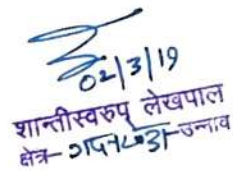 02/3/19
शान्तीस्वरुप लेखपाल
क्षेत्र- उन्नाव